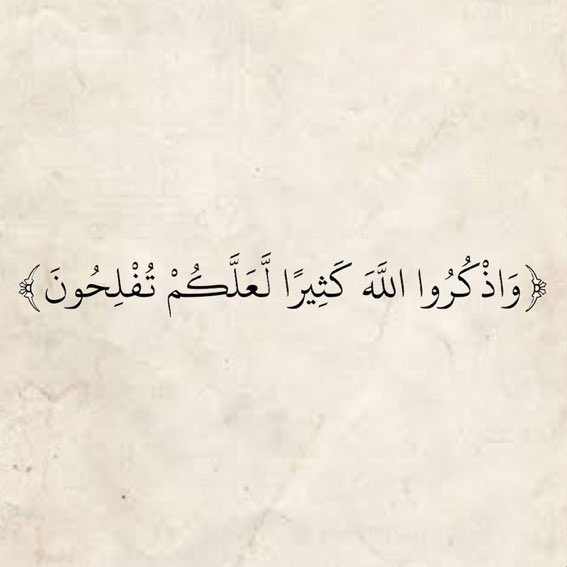 ﴿وَاذْكُرُوا اللَّهَ كَثِيرًا لَّعَلَّكُمْ تُفْلِحُونَ﴾